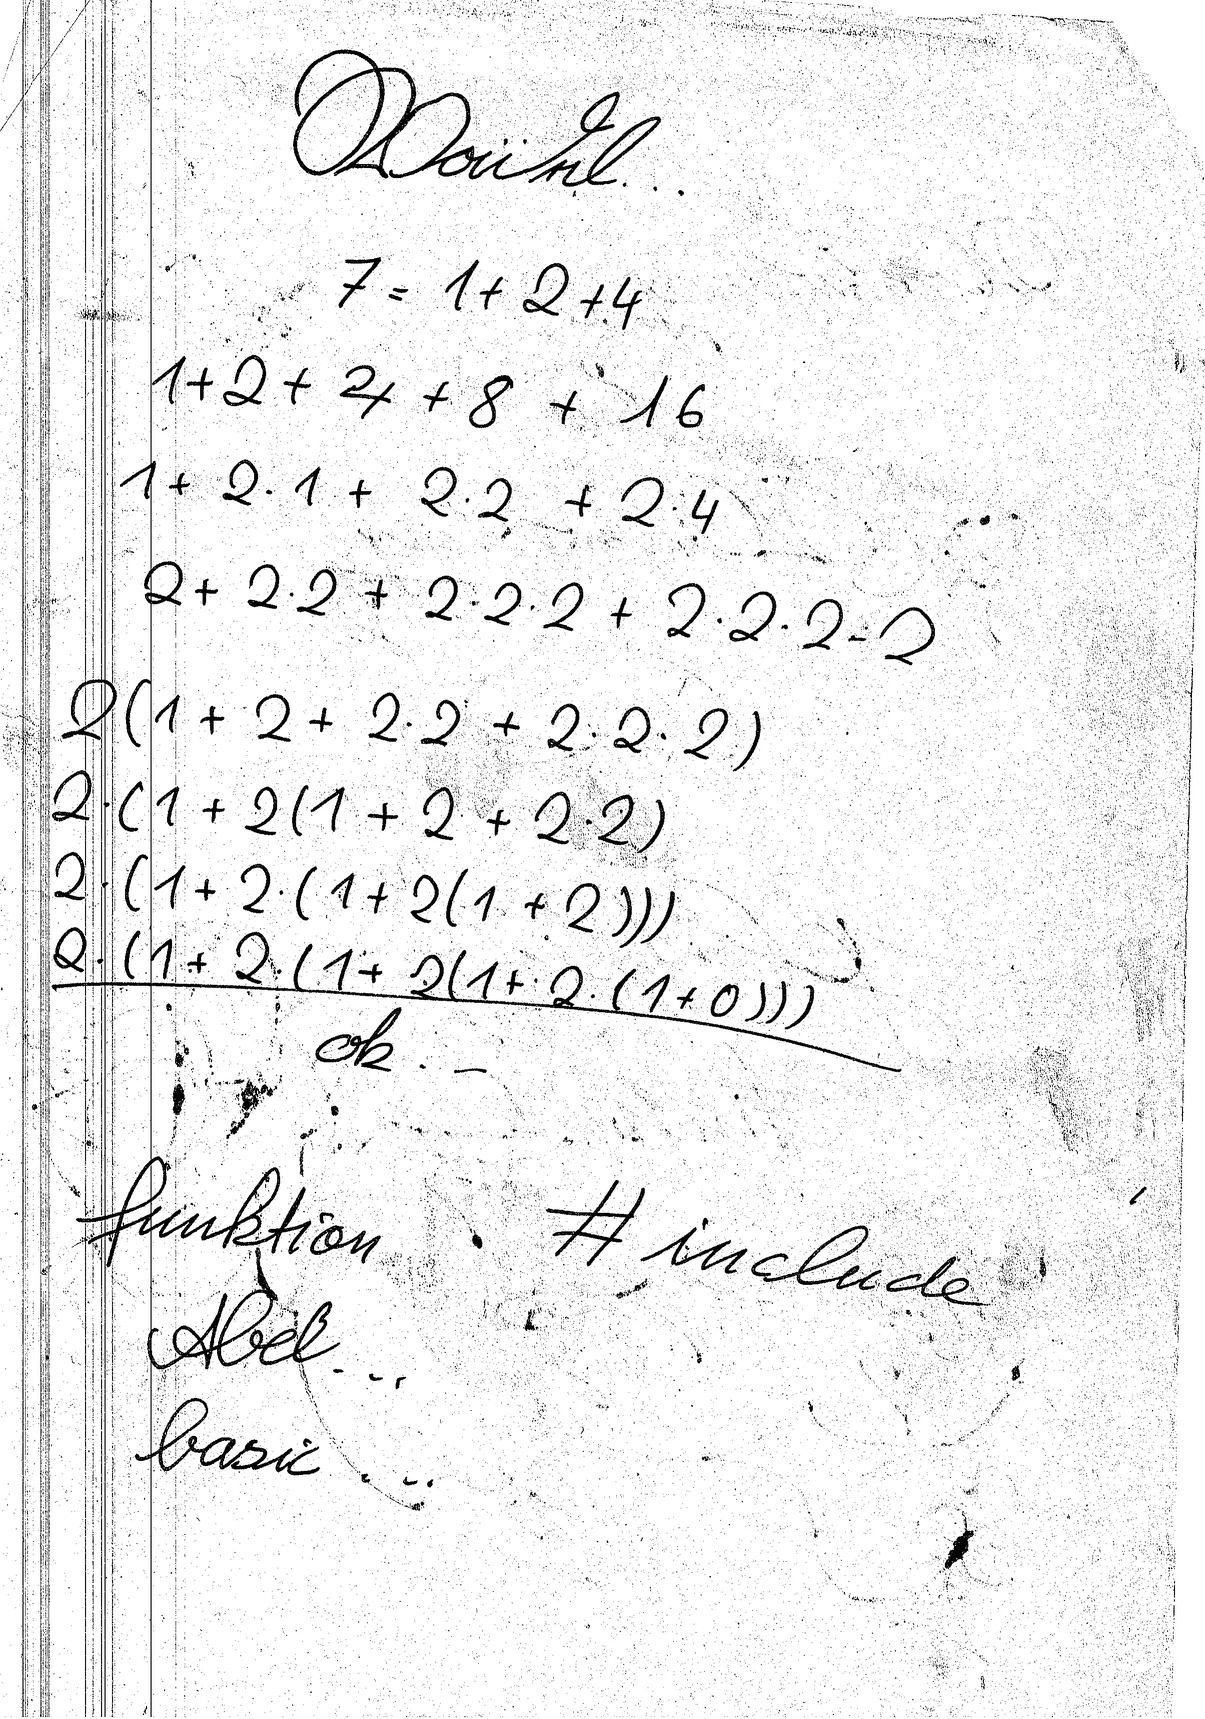 7 = 1+2+4
1+2+4+8+16
1+2·1+2·2+2·4
2+2·2+2·2·2+2·2·2·2
2(1+2+2·2+2·2·2)
2·(1+2(1+2+2·2)
2·(1+2·(1+2(1+2)))
2·(1+2·(1+2(1+2·(1+0)))
ok...
funktion #include
Abel...
basic...